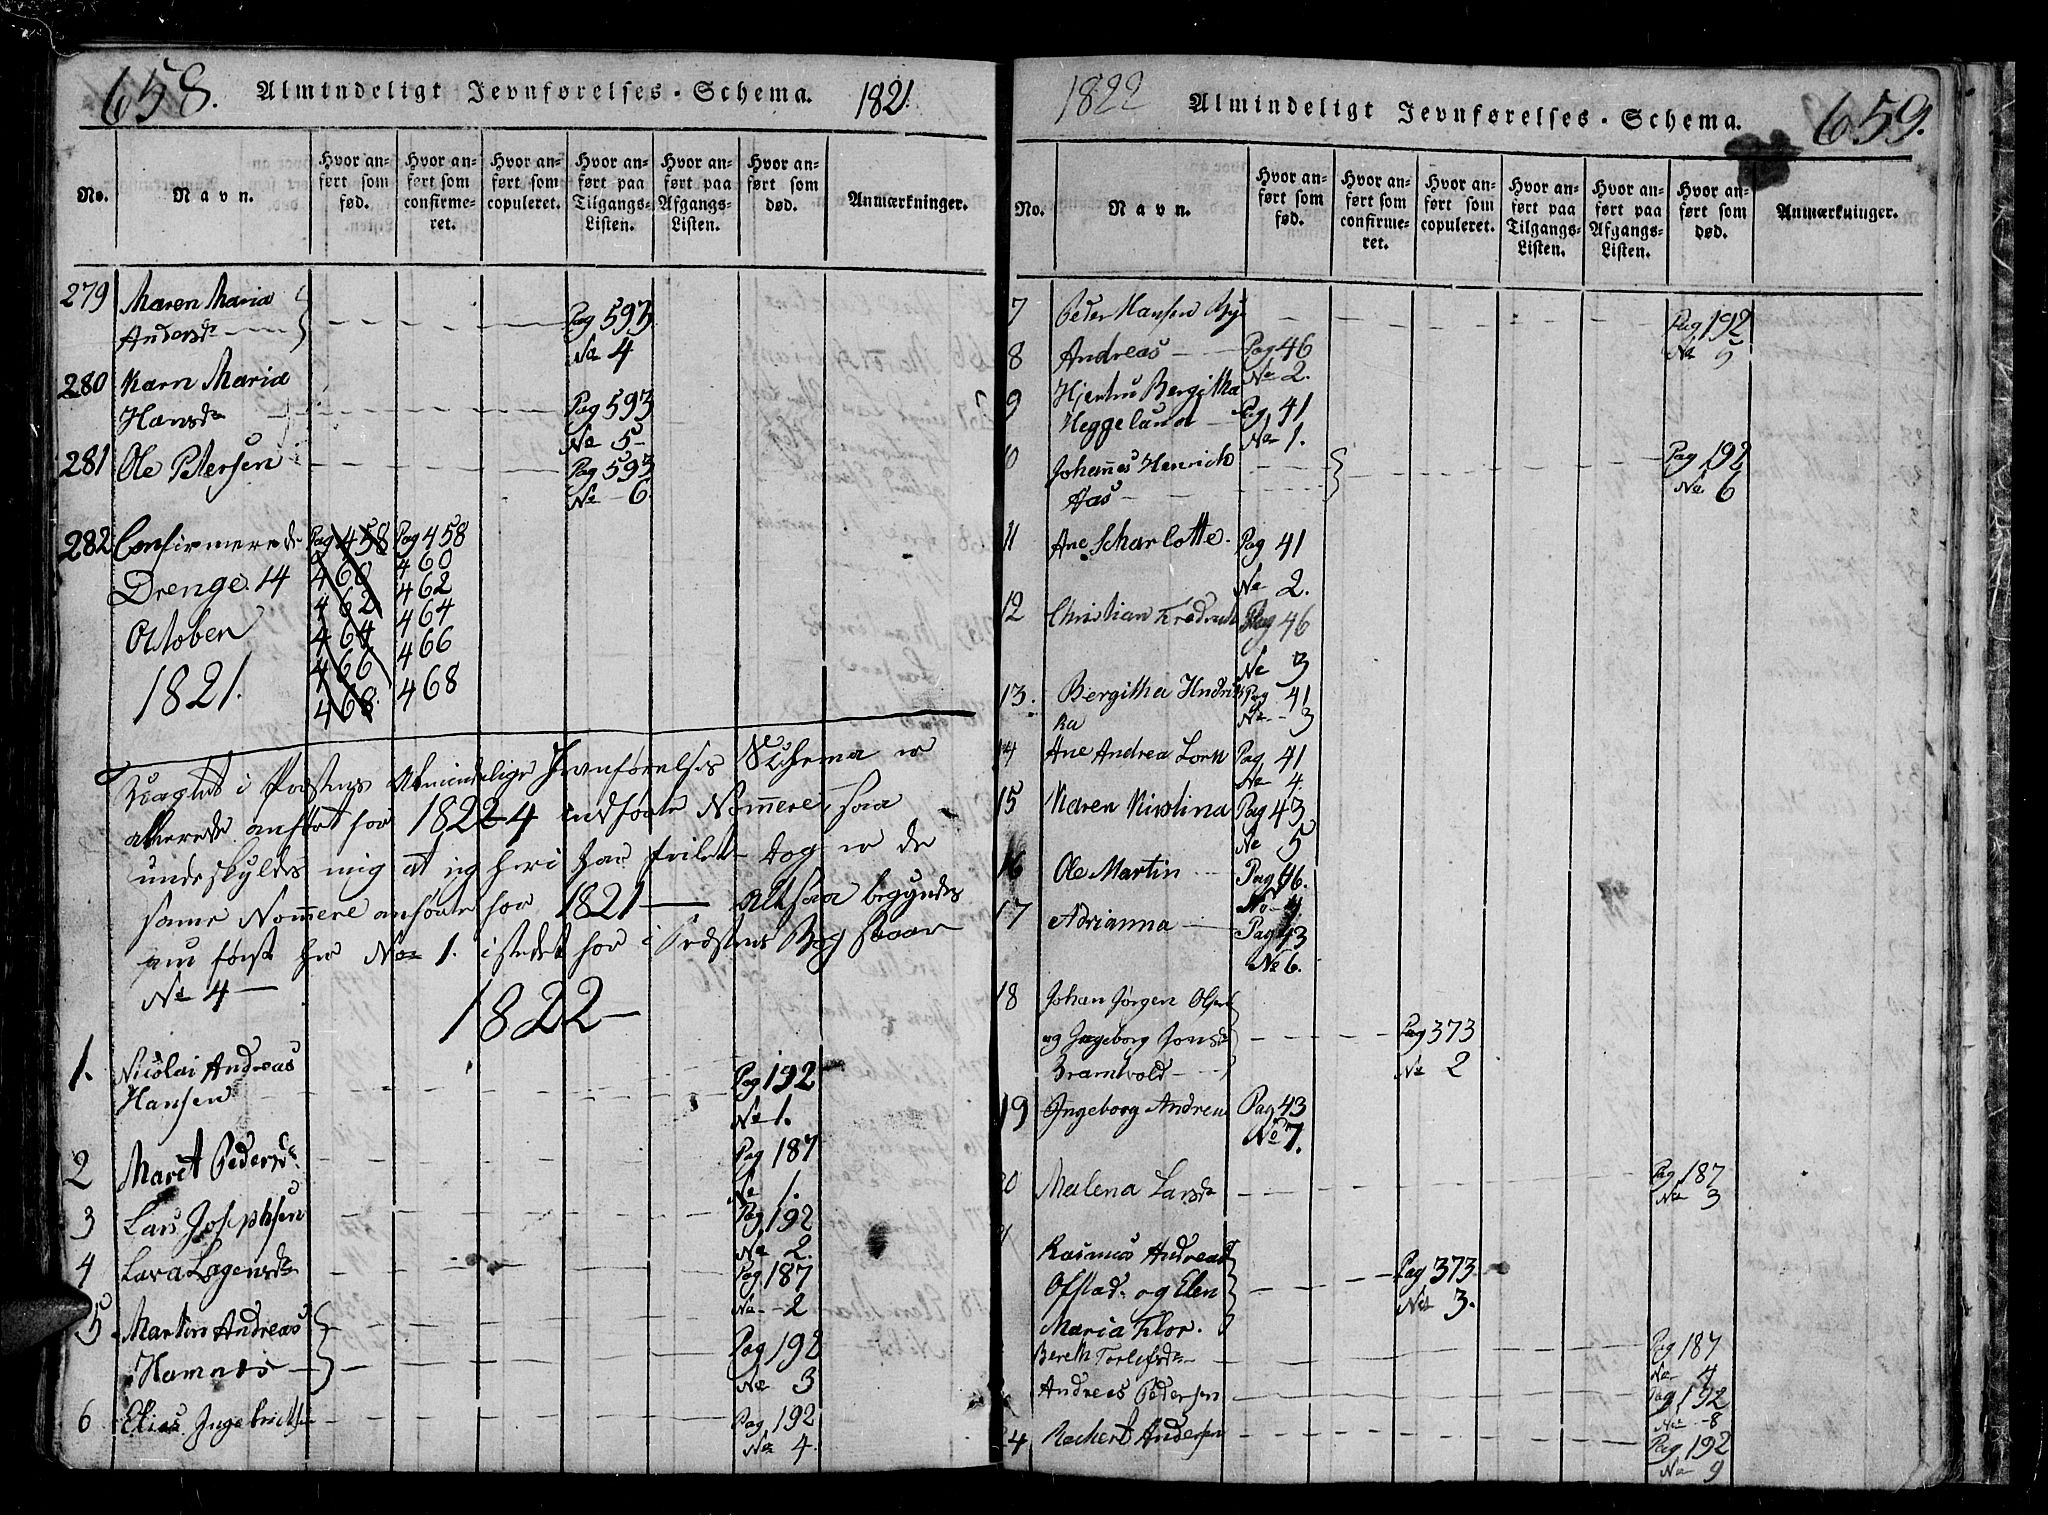 658. Almindeligt Jevnførelses-Schema. 1821.
No. Navn. Hvor anført som fød. Hvor anført som confirmeret. Hvor anført som copuleret. Hvor anført paa Tilgangs-Listen. Hvor anført paa Afgangs-Listen. Hvor anført som død. Anmærkninger.
279 Maren Maria
Andersdr Pag 593
No 4
280 Karn Maria
Hansdr Pag 593
No 5
281 Ole Petersen Pag 593
No 6
282 Confirmerede Pag 458 Pag 458
Drenge 14 460 460
462 462
October 464 464
466 466
1821. 468 468
i Præstens Almindelige Jevnførelses Schema er
allerede anført for 1822 4 indførte Nommere, saa
undskyldes mig at jeg heri har feilet dog er de
samme Nommere anførte for 1821 — altsaa begyndes
nu først her No 1. istedet for i Præstens Bog staar
No 4 —
1822 —
1. Nicolai Andreas
Hansen Pag 192
No 1.
2 Maret Pedersdr. Pag 187
No 1.
3 Lars Josephsen Pag 192
No 2.
4 Lava Lagensdr Pag 187
No 2
5 Martin Andreas
Hamnes Pag 192
No 3
6 Elias Ingebrigts Pag 192
No 4.
1822 Almindeligt Jevnførelses-Schema. 659.
No. Navn. Hvor anført som fød. Hvor anført som confirmeret. Hvor anført som copuleret. Hvor anført paa Tilgangs-Listen. Hvor anført paa Afgangs-Listen. Hvor anført som død. Anmærkninger.
7 Peder Hansen Bye Pag 192
No 5
8 Andreas Pag 46
No 2.
9 Hjertru Bergitha
Heggelund Pag 41
No 1.
10 Johannes Henrich Pag 192
Aas No 6
11 Ane Scharlotte. Pag 41
No 2.
12 Christian Fredrich Pag 46
No 3
13. Bergitha Hndri Pag 41
ka No 3
14 Ane Andrea Lorn Pag 41
No 4.
15 Maren Nicolina Pag 43
No 5
16 Ole Martin Pag 46.
No 4.
17 Adrianna Pag 43
No 6.
18 Johan Jørgen Olsen
og Ingeborg Jonsdr Pag 373
Bramvold No 2
19 Ingeborg Andrea Pag 43
No 7.
20 Malena Larsdr Pag 187
No 3
21 Rasmus Andreas
Ofstad og Elen Pag 373
Maria Flor. No 3.
Bereth Torlefsdr Pag 187
No 4
Andreas Pedersen Pag 192
No 8
24 Rachert Andersen Pag 192
No 9